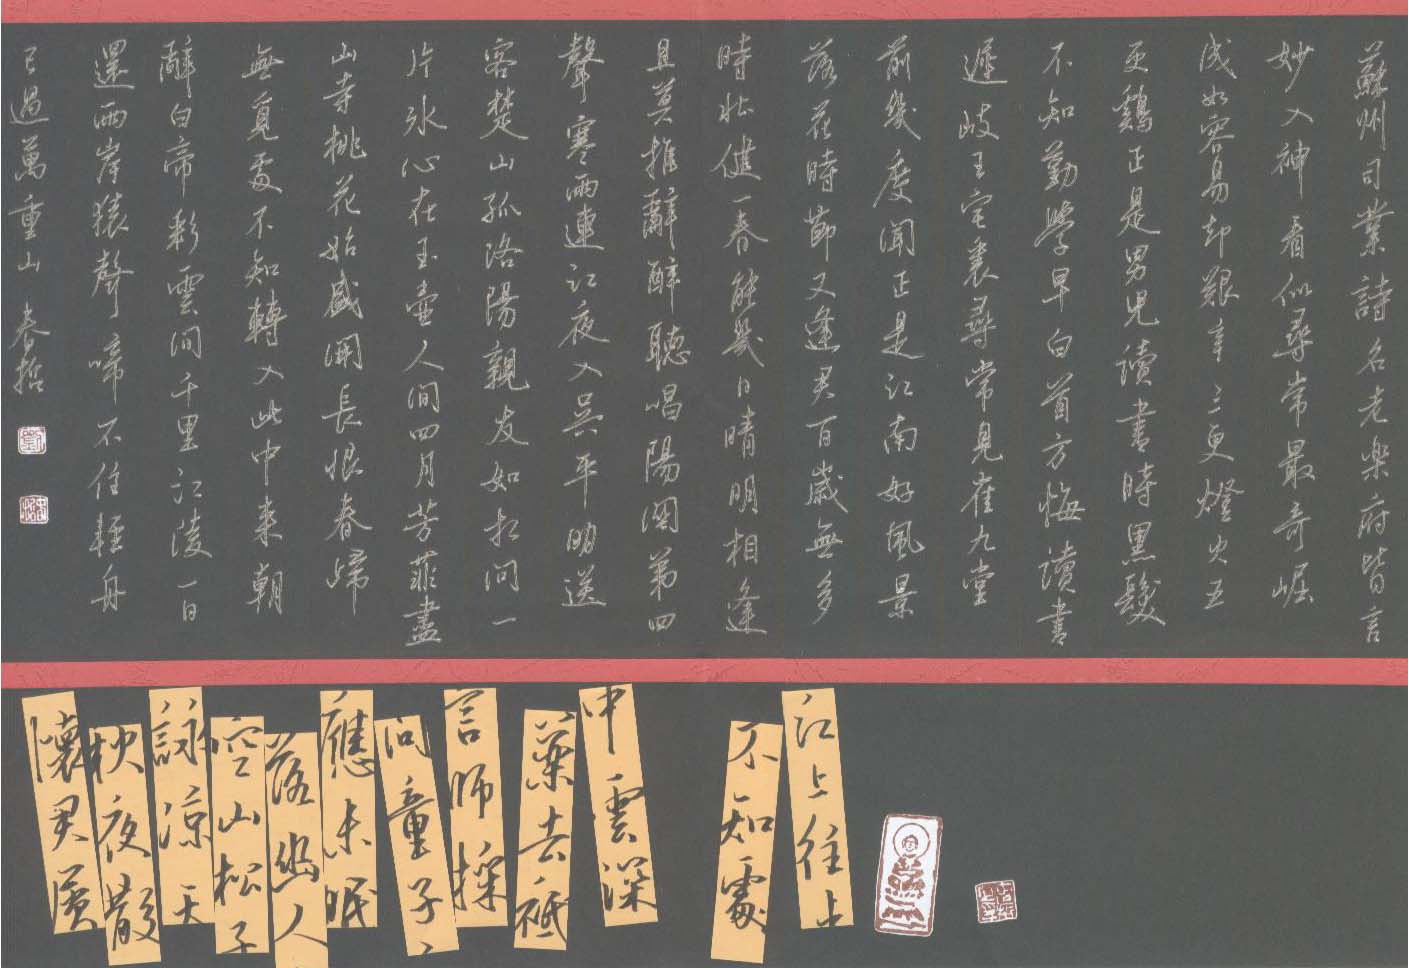 蘇州司業詩名老樂府皆言
妙入神看似尋常最奇崛
成如容易却艱辛三更燈火五
更鷄正是男兒讀書時黑髮
不知勤學早白首方悔讀書
遲岐王宅裏尋常見崔九堂
前幾度聞正是江南好風景
落花時節又逢君百歲無多
時壯健一春能幾日晴明相逢
且莫推辭醉聽唱陽関第四
聲寒雨連江夜入吳平明送
客楚山孤洛陽親友如相問一
片冰心在玉壺人間四月芳菲盡
山寺桃花始盛開長恨春歸
無覓處不知轉入此中來朝
辭白帝彩雲間千里江陵一日
還兩岸猿聲啼不住輕舟
已過萬重山 春哲
江上往上
不知處
中雲深
藥去祗
言師採
問童子
應未眠
落幽人
空山松子
詠涼天
秋夜散
懷君屬